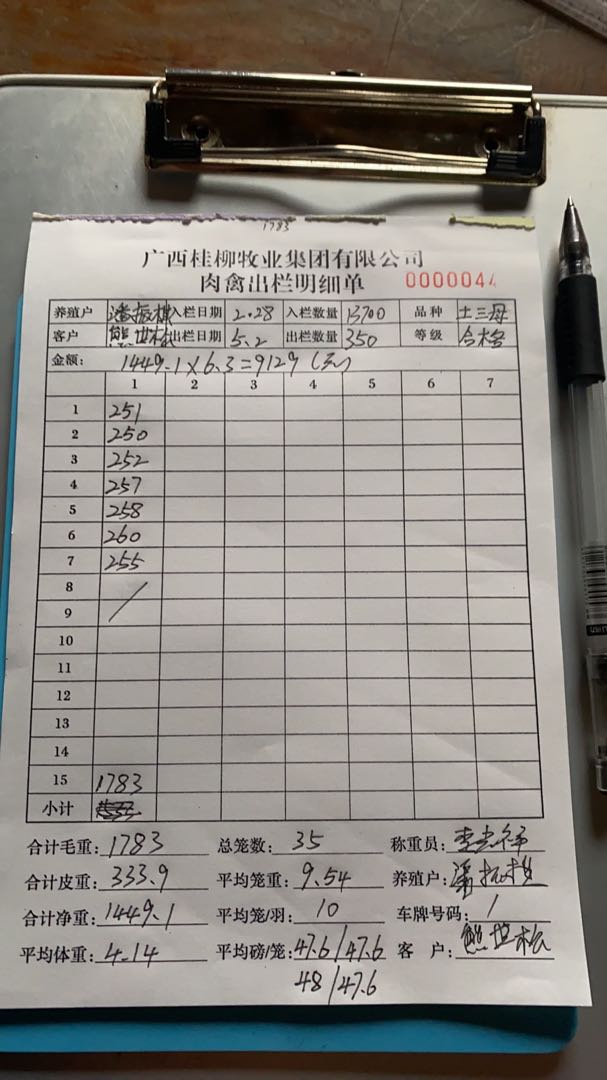 1783
广西桂柳牧业集团有限公司
肉禽出栏明细单 0000044
养殖户 潘振棋 入栏日期 2.28 入栏数量 13700 品种 土三母
客户 熊世松 出栏日期 5.2 出栏数量 350 等级 合格
金额: 1449.1×6.3=9129(元)
1 2 3 4 5 6 7
1 251
2 250
3 252
4 257
5 258
6 260
7 255
8
9
10
11
12
13
14
15 1783
小计
合计毛重: 1783 总笼数: 35 称重员:
合计皮重: 333.9 平均笼重: 9.54 养殖户: 潘振棋
合计净重: 1449.1 平均笼/羽: 10 车牌号码: /
平均体重: 4.14 平均磅/笼: 47.6/47.6 客户: 熊世松
48/47.6